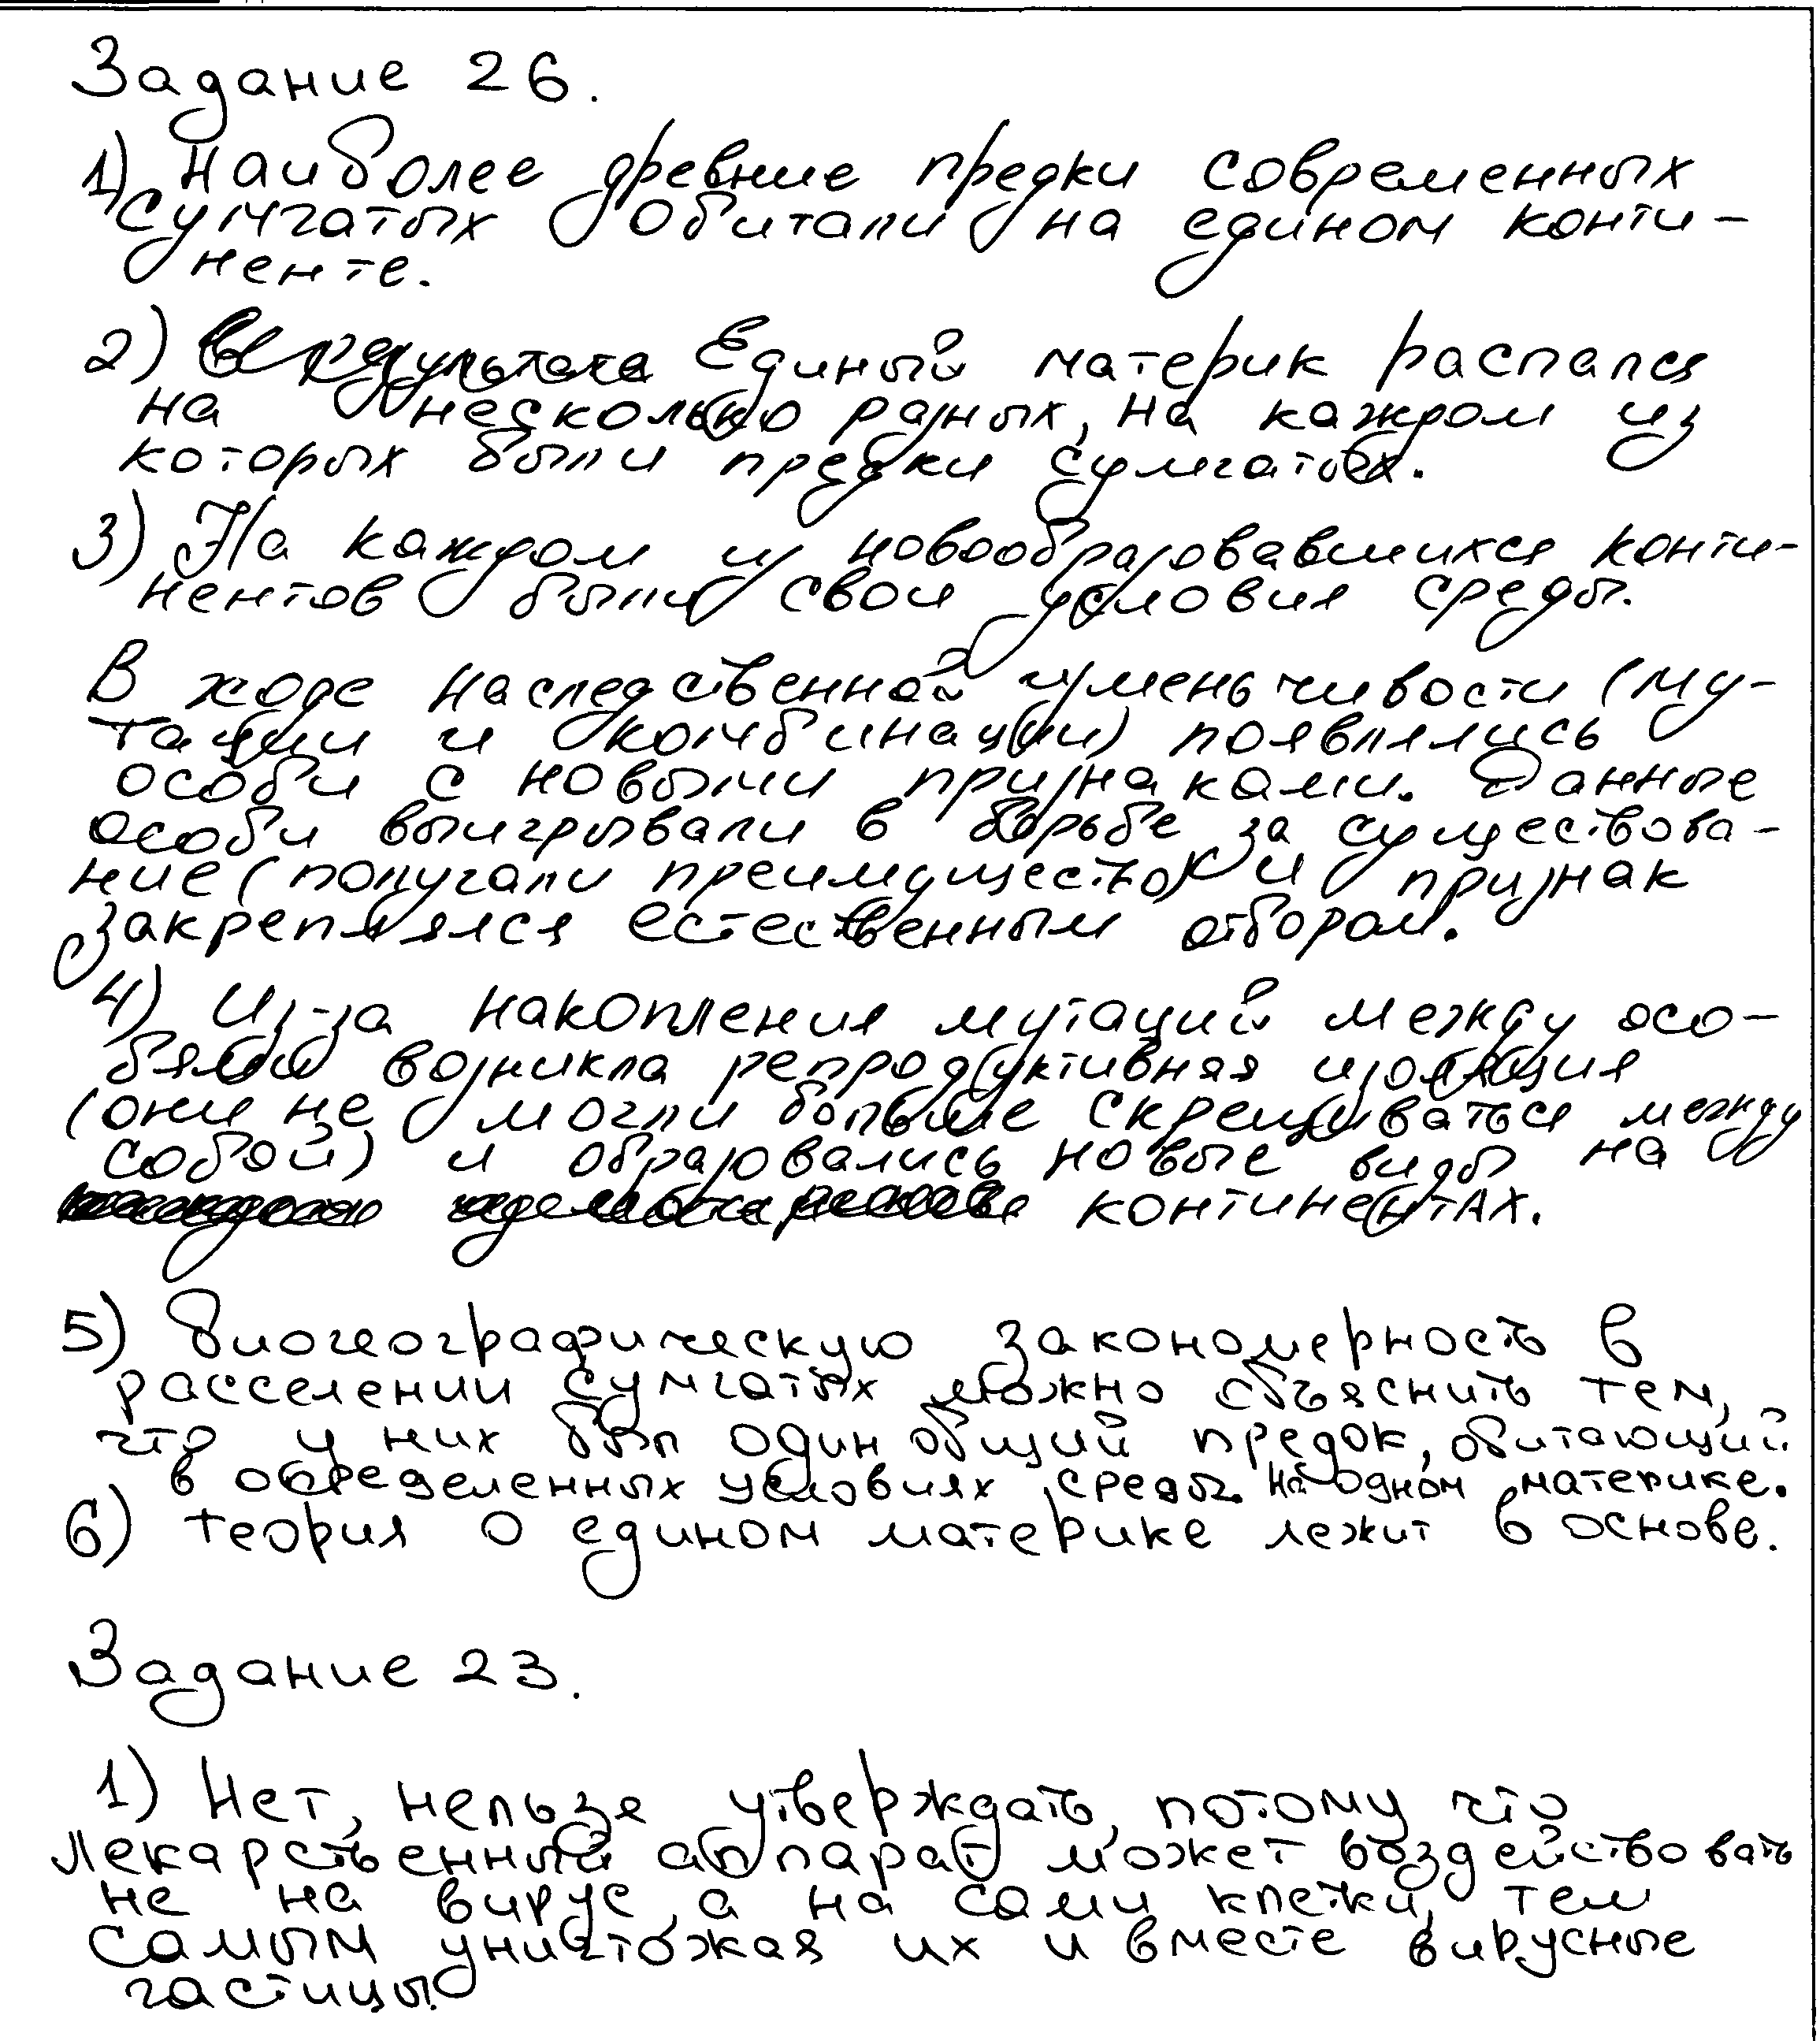 Задание 26.
1) Наиболее древние предки современных
сумчатых обитали на едином конти-
ненте.
2) Единый материк распался
на несколько разных, на каждом из
которых были предки сумчатых.
3) На каждом из новообразовавшихся конти-
нентов были свои условия среды.
В ходе наследственной изменчивости (му-
тации и комбинации) появлялись
особи с новыми признаками. Данные
особи выигрывали в борьбе за существова-
ние (получали преимущество) и признак
закреплялся естественным отбором.
4) Из-за накопления мутаций между осо-
бями возникла репродуктивная изоляция
(они не могли больше скрещиваться между
собой) и образовались новые виды на
континентах.
5) Биогеографическую закономерность в
расселении сумчатых можно объяснить тем,
что у них был один общий предок, обитающий
в определенных условиях среды на одном материке.
6) Теория о едином материке лежит в основе.
Задание 23.
1) Нет, нельзя утверждать, потому что
лекарственный аппарат может воздействовать
не на вирус, а на сами клетки, тем
самым уничтожая их и вместе вирусные
частицы.